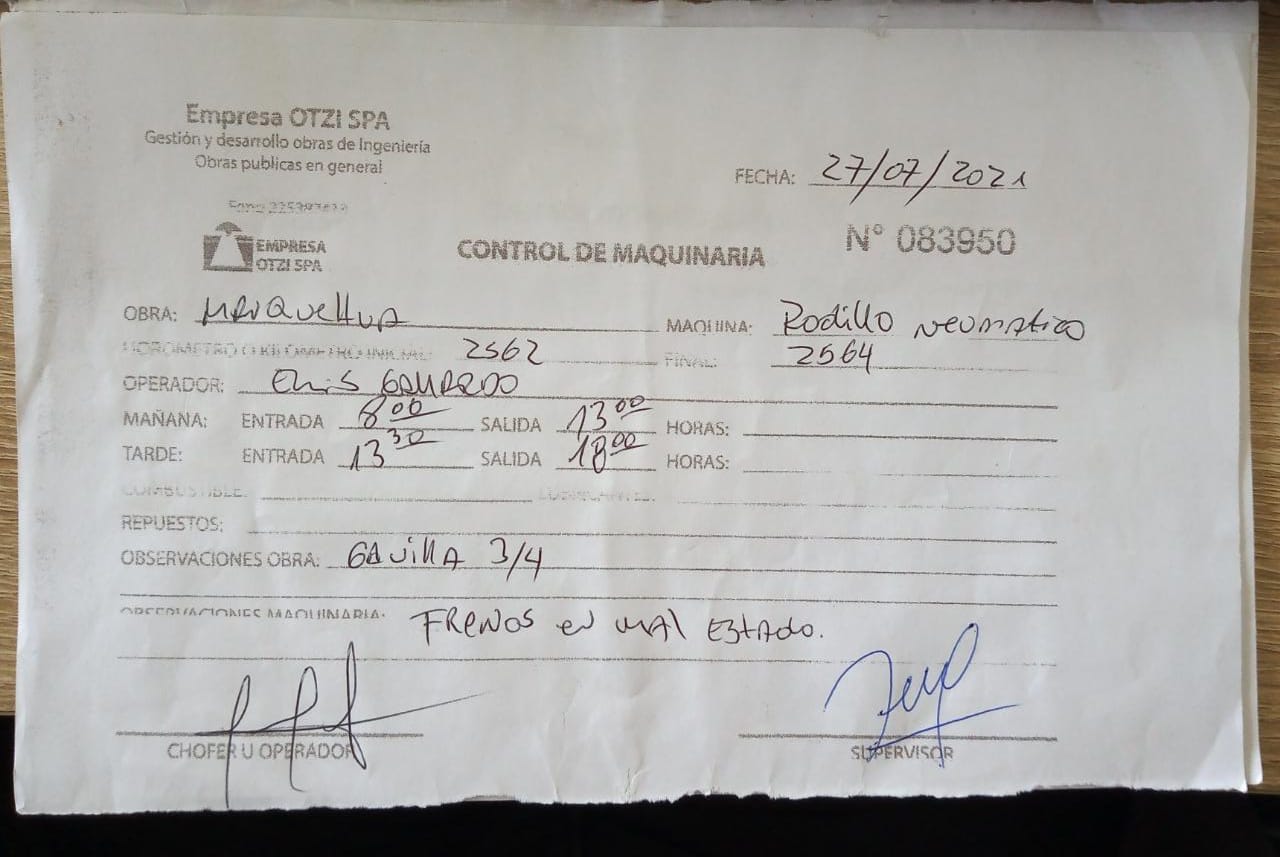 Empresa OTZI SPA
Gestión y desarrollo obras de Ingeniería
Obras publicas en general
FECHA: 27/07/2021
EMPRESA
OTZI SPA
CONTROL DE MAQUINARIA
N° 083950
OBRA: MAIQuellua MAQUINA: Rodillo neumatico
HOROMETRO O KILOMETRO INICIAL: 2562 FINAL: 2564
OPERADOR: Elvis GALLARDO
MAÑANA: ENTRADA 8 00 SALIDA 13 00 HORAS:
TARDE: ENTRADA 13 30 SALIDA 18 00 HORAS:
COMBUSTIBLE: LUBRICANTE:
REPUESTOS:
OBSERVACIONES OBRA: GAVILLA 3/4
OBSERVACIONES MAQUINARIA: FRENOS en MAL EStADO.
CHOFER U OPERADOR
SUPERVISOR